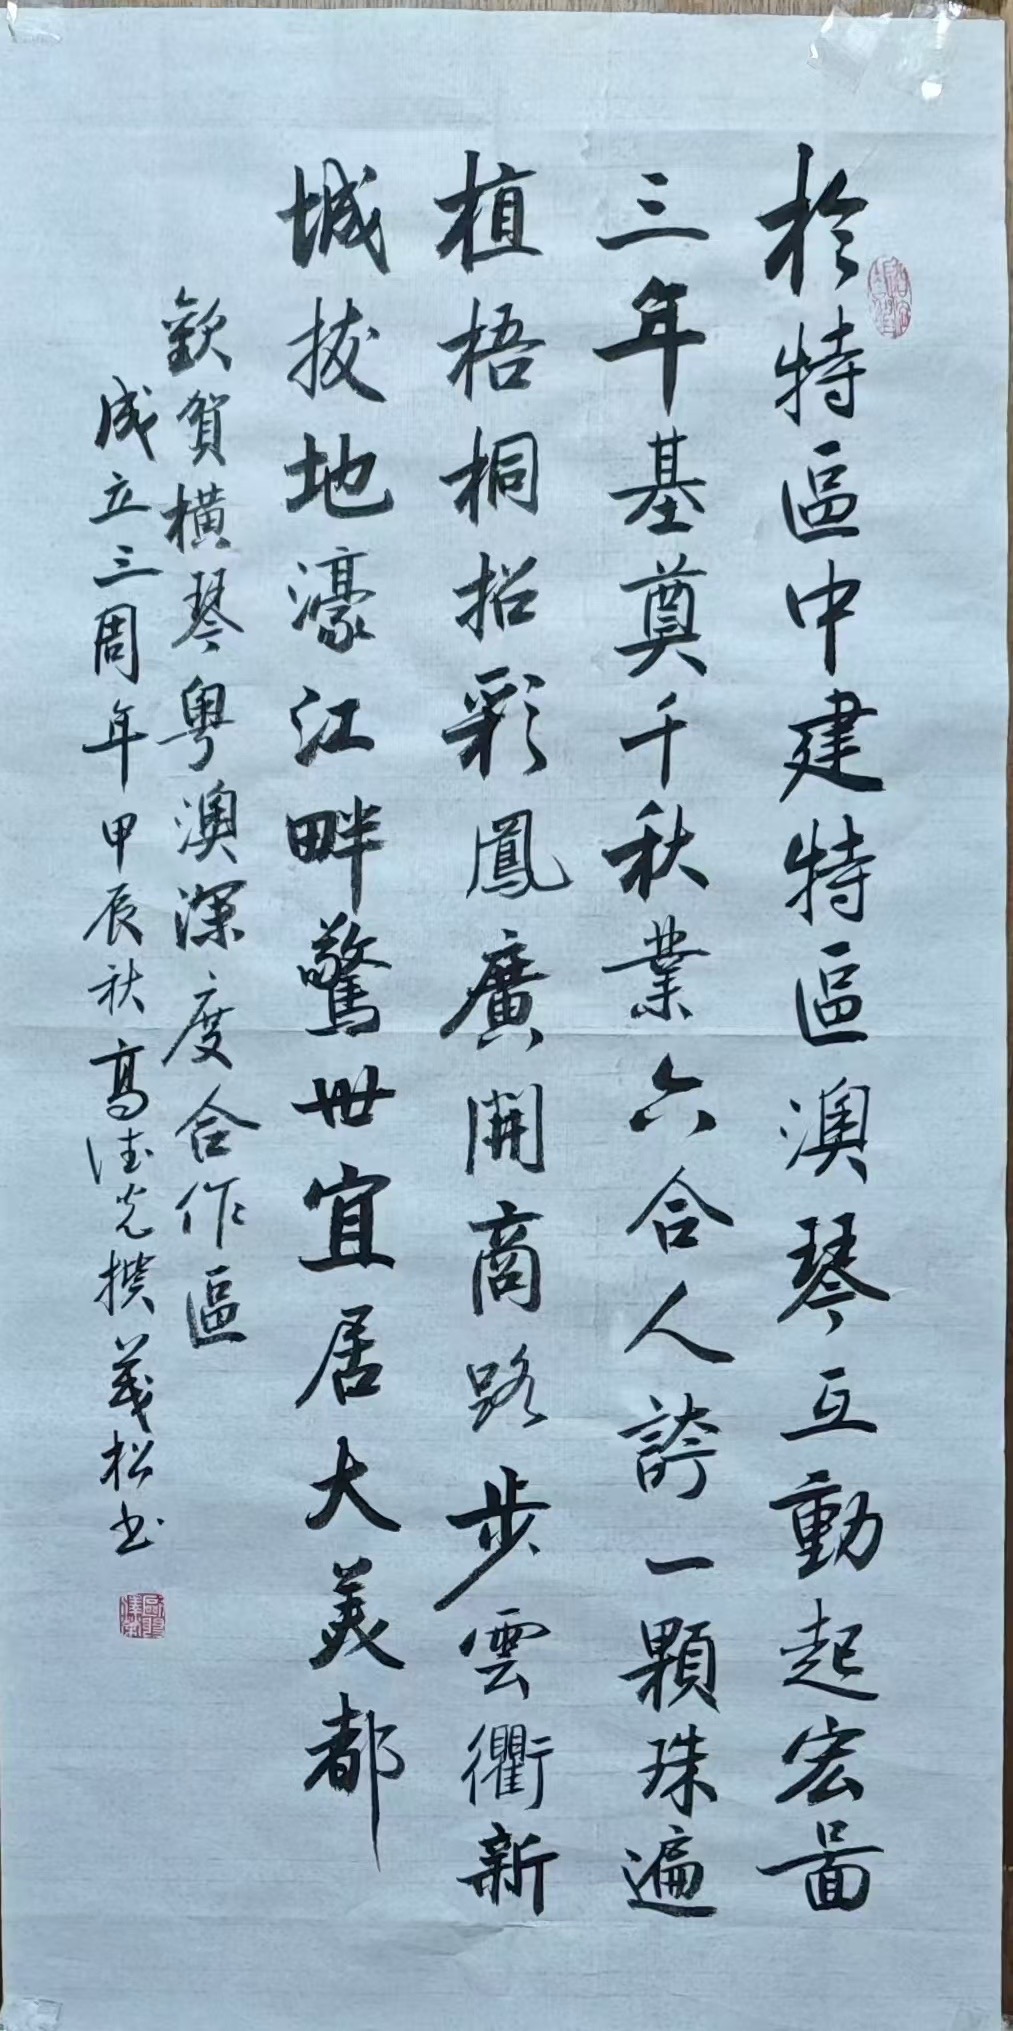 於特區中建特區澳琴互動起宏啚
三年基奠千秋業六合人誇一顆珠遍
植梧桐招彩鳳廣開商路步雲衢新
城拔地濠江畔驚世宜居大美都
歡賀橫琴粵澳深度合作區
成立三周年甲辰秋高德光撰義松书